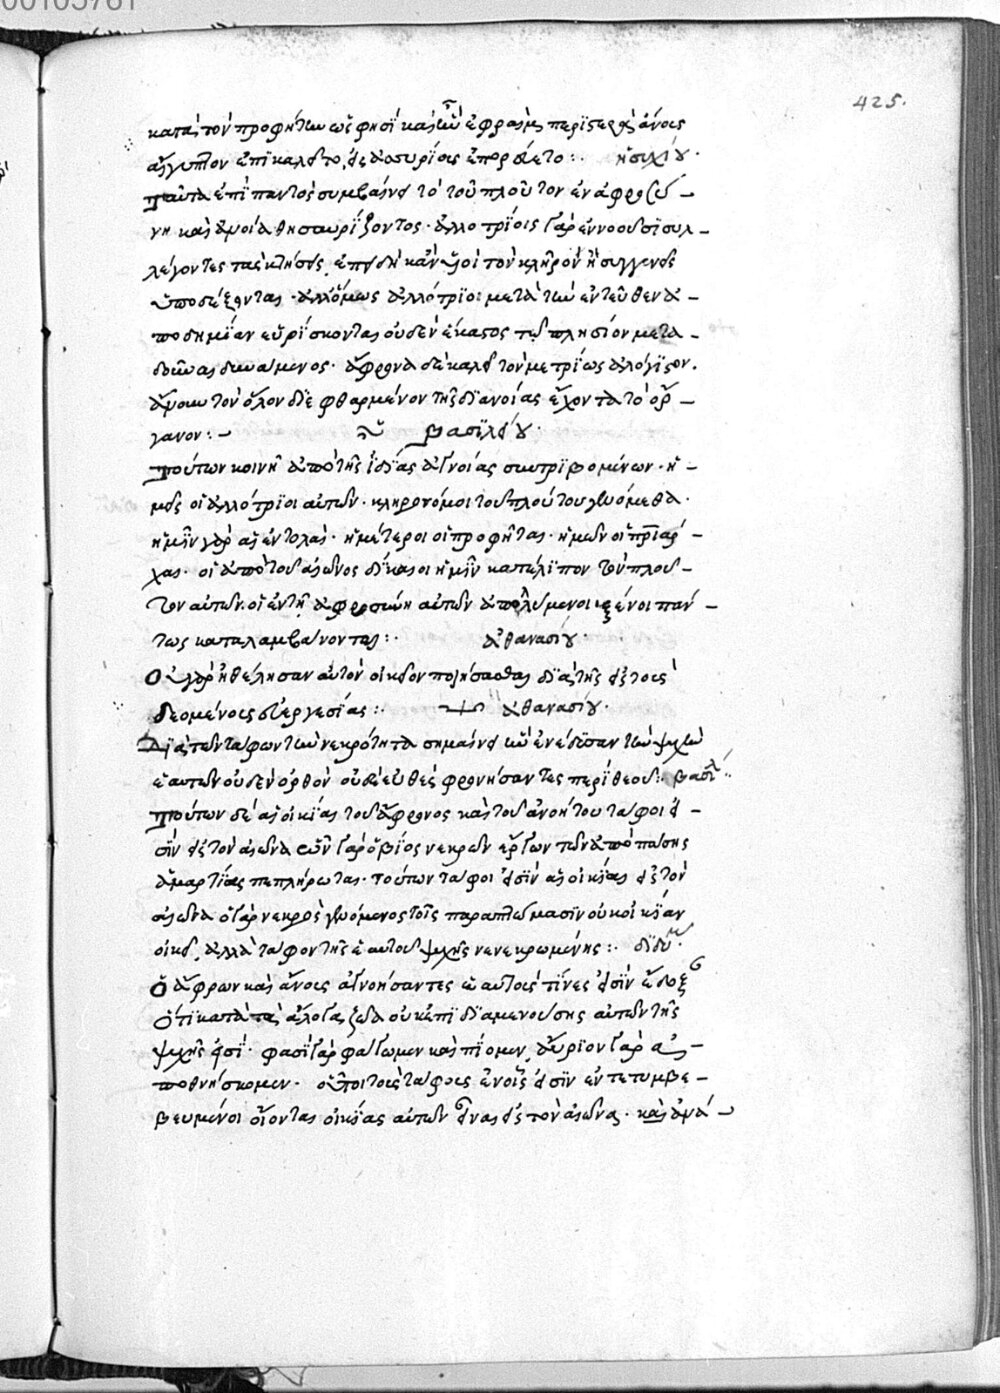 00105781
425.
κατὰ τὸν προφήτην ὥς φησὶ καὶ ἦν ἐφραὶμ περιστερὰ ἄνοις
αἴγυπτον ἐπικαλεῖτο, εἰς ἀσσυρίοις ἐπορεύετο :· ἡσυχίου·
ταῦτα ἐπὶ παντὸς συμβαίνει τὸ τοῦ πλοῦτον ἐν ἀφροσύ-
νη καὶ ἀνοία θησαυρίζοντος· ἀλλοτρίοις γὰρ ἐννοοῦσι συλ-
λέγοντες τὰς κτήσεις, ἐπειδὴ κἂν υἱοὶ τὸν κλῆρον ἢ συγγενεῖς
ὑποδέξονται· ἀλλ' ὅμως ἀλλότριοι μετὰ τὴν ἐντεῦθεν ἀ-
ποδημίαν εὑρίσκονται οὐδὲν ἕκαστος τῷ πλησίον μετα-
δοῦναι δυνάμενος· ἄφρονα δὲ καλεῖ τὸν μετρίως ἀλόγιστον.
ἄνουν τὸν ὅλον διεφθαρμένον τῆς διανοίας ἔχοντα τὸ ὄρ-
γανον :- βασιλείου·
τούτων κοινῇ ἀπὸ τῆς ἰδίας ἀγνοίας συντριβομένων· ἡ-
μεῖς οἱ ἀλλότριοι αὐτῶν· κληρονόμοι τοῦ πλούτου γινόμεθα·
ἡμῖν γὰρ αἱ ἐντολαί· ἡμέτεροι οἱ προφῆται· ἡμῶν οἱ πριάρ-
χαι· οἱ ἀπὸ τοῦ αἰῶνος δίκαιοι ἡμῖν κατέλιπον τὸν πλοῦ-
τον αὐτῶν· οἱ ἐν τῇ ἀφροσύνῃ αὐτῶν ἀπολλύμενοι ξένοι πάν-
τως καταλαμβάνονται :· ἀθανασίου·
Οὐ γὰρ ἠθέλησαν αὐτὸν οἰκεῖον ποιήσασθαι διὰ τῆς εἰς τοὺς
δεομένους εὐεργεσίας :· ἀθανασίου·
Διὰ τῶν τάφων τὴν νεκρότητα σημαίνει ἣν ἐνέδησαν τὴν ψυχὴν
ἑαυτῶν οὐδὲν ὀρθὸν οὐδὲ εὐθὲς φρονήσαντες περὶ θεοῦ :· βασιλ
τούτων δὲ αἱ οἰκίαι τοῦ ἄφρονος καὶ τοῦ ἀνοήτου τάφοι εἰ-
σὶν εἰς τὸν αἰῶνα ὧν γὰρ ὁ βίος νεκρῶν ἔργων τῶν ἀπὸ πάσης
ἁμαρτίας πεπλήρωται· τούτων τάφοι εἰσὶν αἱ οἰκίαι εἰς τὸν
αἰῶνα ὁ γὰρ νεκρὸς γενόμενος τοῖς παραπτώμασιν οὐκ οἰκίαν
οἰκεῖ, ἀλλὰ τάφον τῆς ἑαυτοῦ ψυχῆς νενεκρωμένης :· διδύμ·
Ὁ ἄφρων καὶ ἄνους ἀγνοήσαντες ἑαυτοὺς τίνες εἰσὶν ἔδοξ
Ὅτι κατὰ τὰ ἄλογα ζῶα οὐκέτι διαμενούσης αὐτῶν τῆς
ψυχῆς εἰσί· φασὶ γὰρ φάγωμεν καὶ πίομεν, αὔριον γὰρ ἀ-
ποθνήσκομεν· οὗτοι τοῖς τάφοις ἐν οἷς εἰσιν ἐντετυμβε-
βευμένοι οἴονται οἰκίας αὐτῶν εἶναι εἰς τὸν αἰῶνα· καὶ ἀνά-